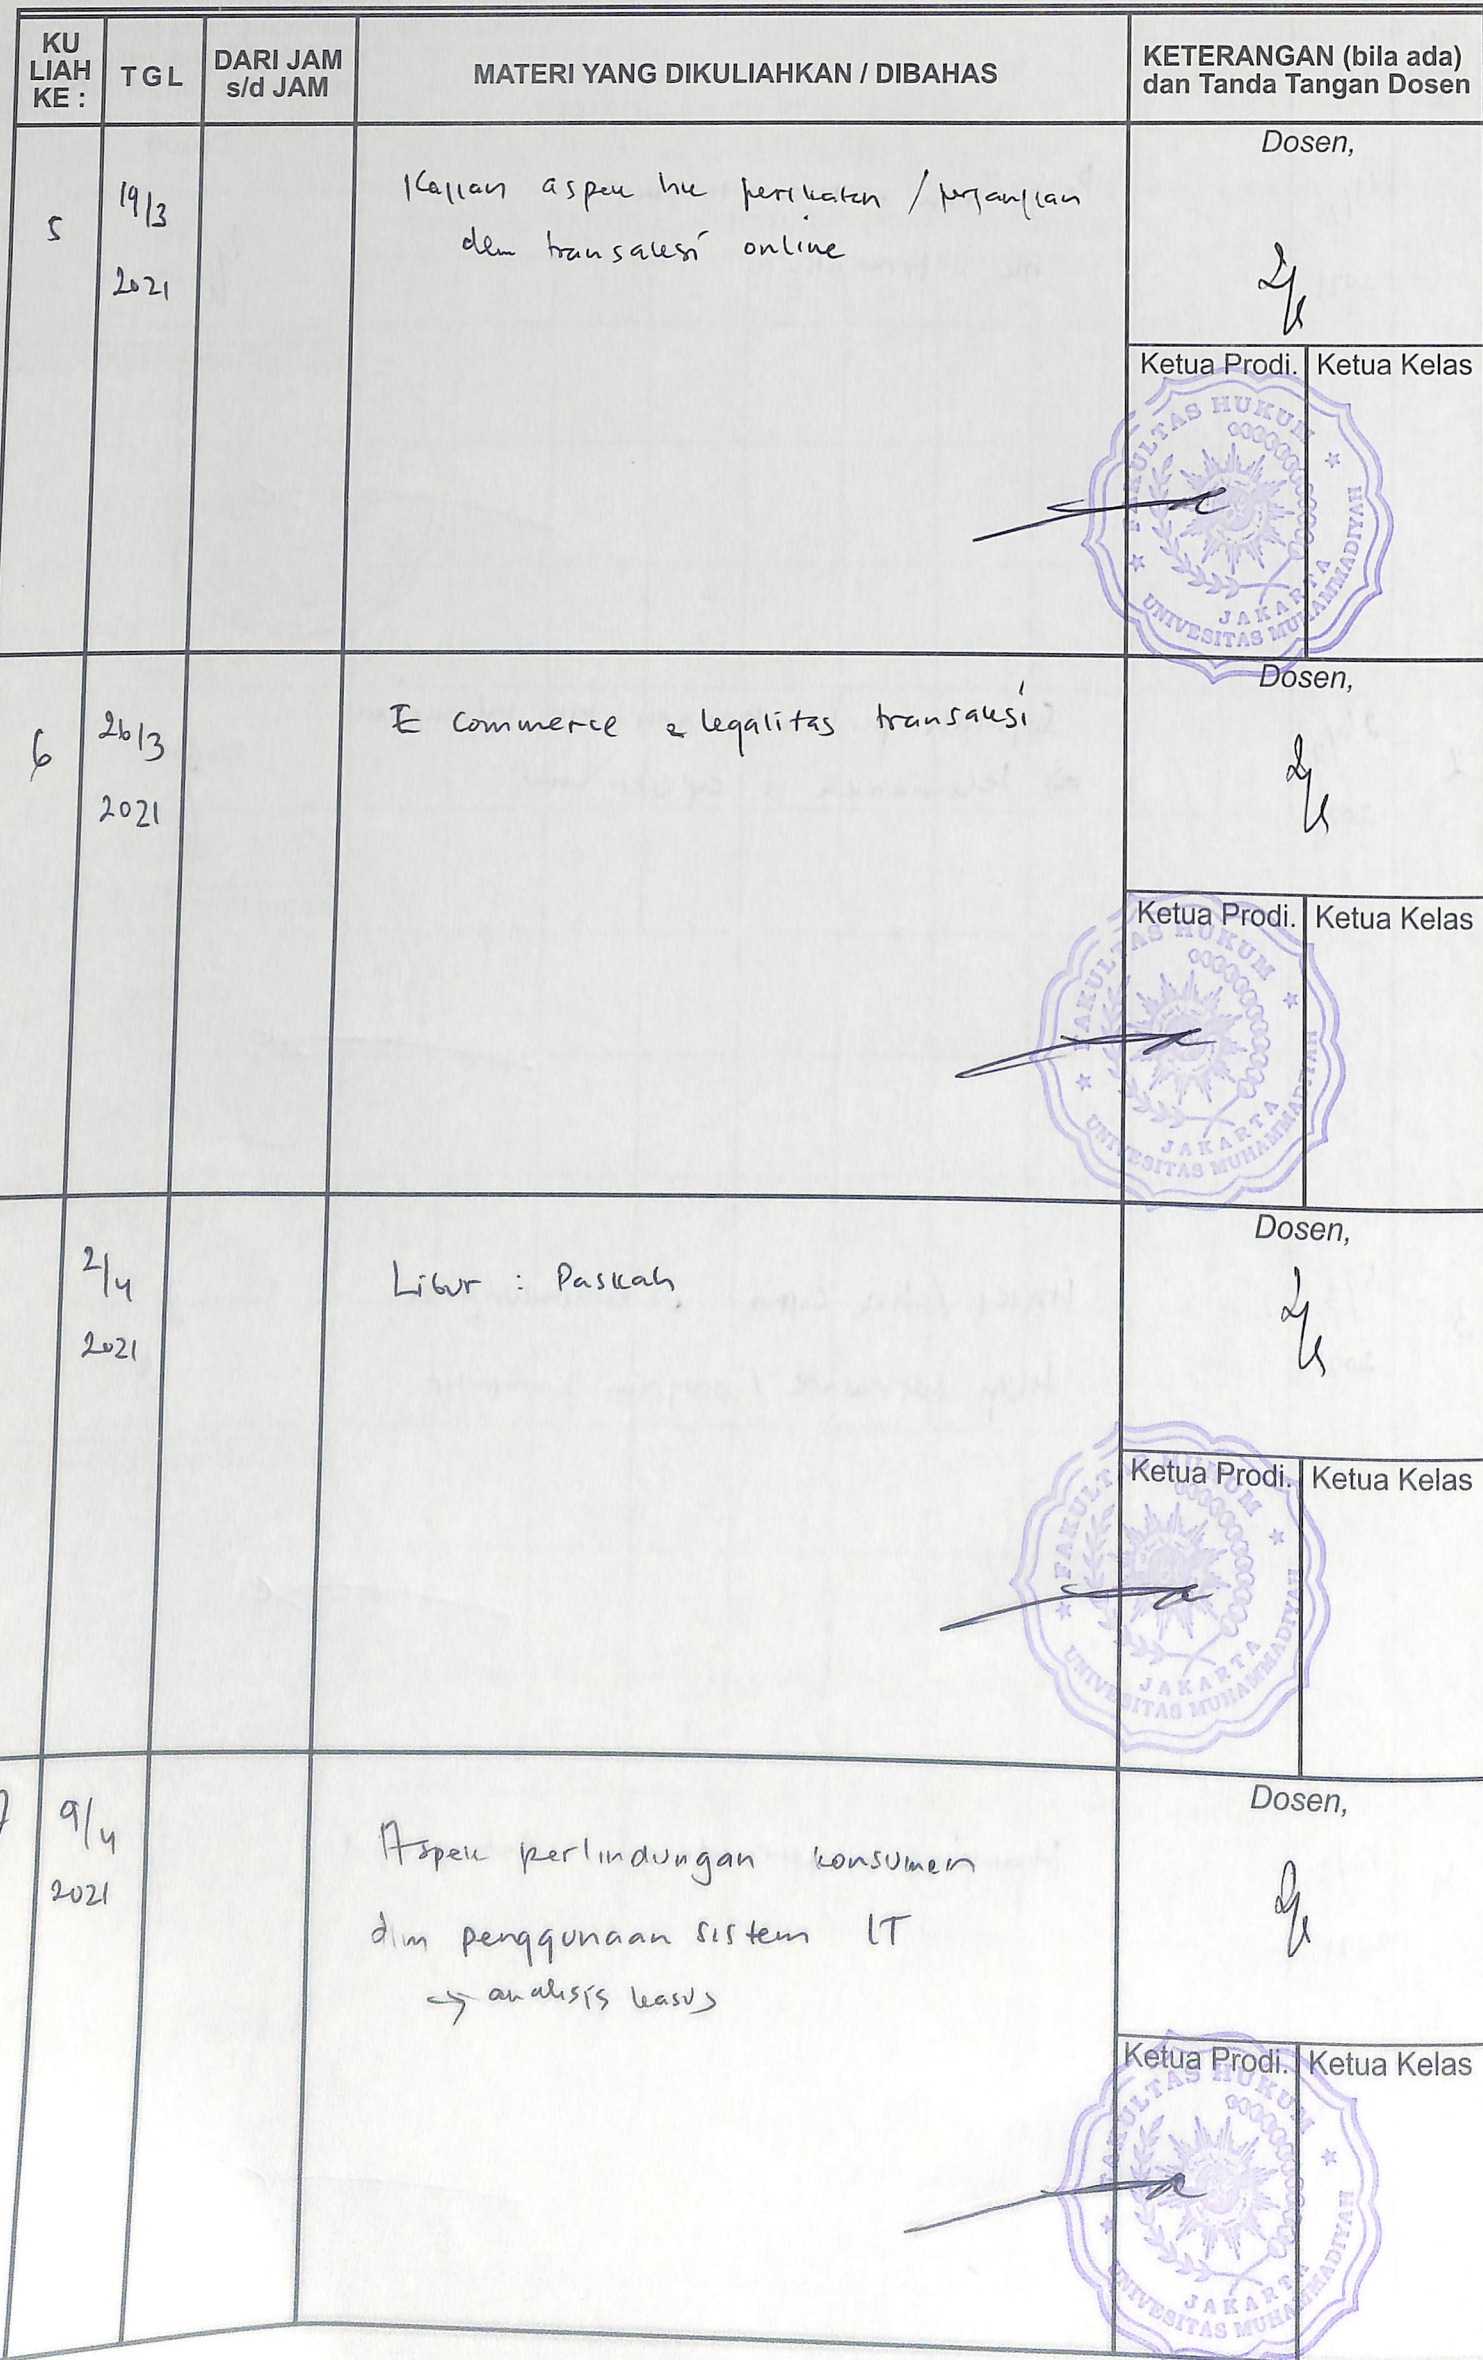 KU LIAH KE :
TGL
DARI JAM s/d JAM
MATERI YANG DIKULIAHKAN / DIBAHAS
KETERANGAN (bila ada) dan Tanda Tangan Dosen
5
19/3
2021
Kajian aspek hk perikatan / perjanjian
dlm transaksi online
Dosen,
Ketua Prodi.
Ketua Kelas
FAKULTAS HUKUM
JAKARTA
UNIVESITAS MUHAMMADIYAH
6
26/3
2021
E commerce & legalitas transaksi
Dosen,
Ketua Prodi.
Ketua Kelas
FAKULTAS HUKUM
JAKARTA
UNIVESITAS MUHAMMADIYAH
2/4
2021
Libur : Paskah
Dosen,
Ketua Prodi.
Ketua Kelas
FAKULTAS HUKUM
JAKARTA
UNIVESITAS MUHAMMADIYAH
9/4
2021
Aspek perlindungan konsumen
dlm penggunaan sistem IT
→ analisis kasus
Dosen,
Ketua Prodi.
Ketua Kelas
FAKULTAS HUKUM
JAKARTA
UNIVESITAS MUHAMMADIYAH